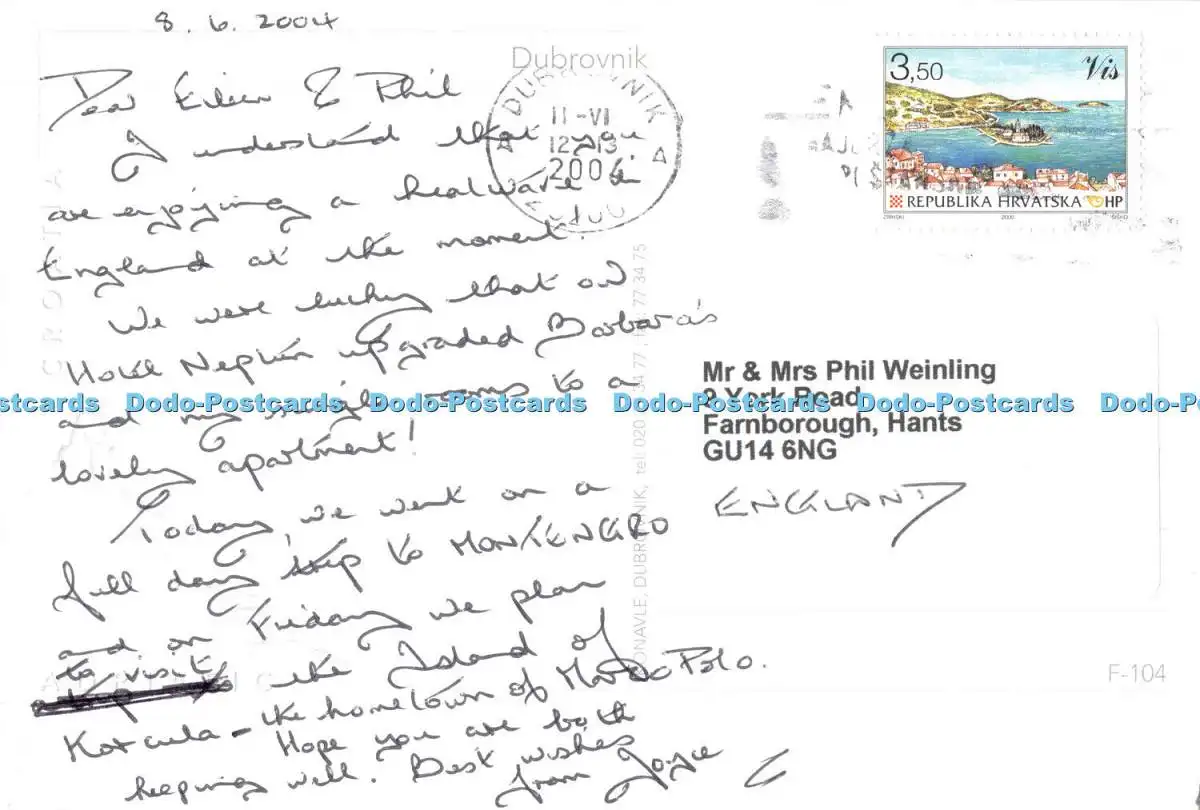 8.6.2004
Dear Eileen & Phil
I understand that you
are enjoying a heatwave in
England at the moment.
We were lucky that our
Hotel Neptun upgraded Barbara's
and my single rooms to a
lovely apartment!
Today, we went on a
full day trip to MONTENEGRO
and on Friday we plan
to visit the Island of
Korcula - the hometown of Marco Polo.
Hope you are both
keeping well. Best wishes
from Joyce
Dubrovnik
DUBROVNIK
11-VI
12 13
2004
3,50
Vis
REPUBLIKA HRVATSKA HP
2000
Mr & Mrs Phil Weinling
2 York Road
Farnborough, Hants
GU14 6NG
ENGLAND
CROATIA
KONAVLE, DUBROVNIK, tel: 020 77 34 75
F-104
Dodo-Postcards Dodo-Postcards Dodo-Postcards Dodo-Postcards